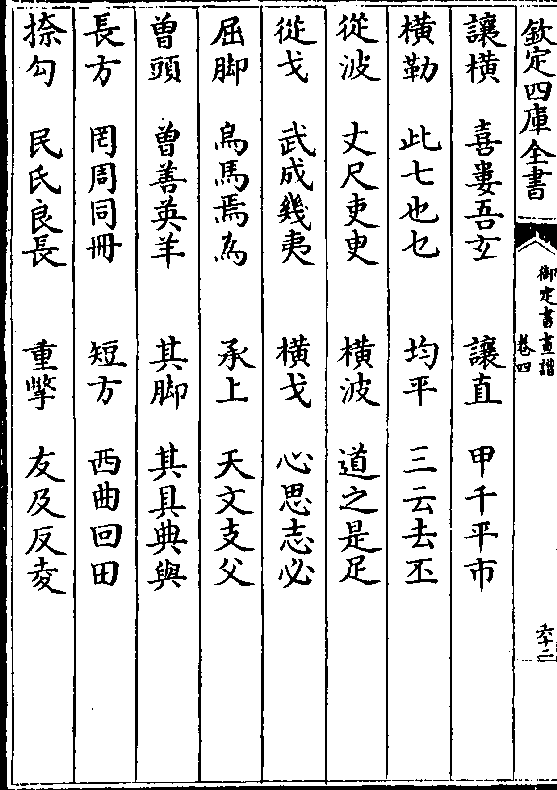 欽定四庫全書
御定書畫譜
卷四
六十二
讓橫 喜婁吾玄 讓直 甲千平市
橫勒 此七也乜 均平 三云去丕
從波 丈尺吏更 橫波 道之是足
從戈 武成幾夷 橫戈 心思志必
屈脚 烏馬焉為 承上 天文支父
曽頭 曽善英羊 其脚 其具典與
長方 罔周同冊 短方 西曲回田
捺勾 民氏良長 重撆 友及反夌